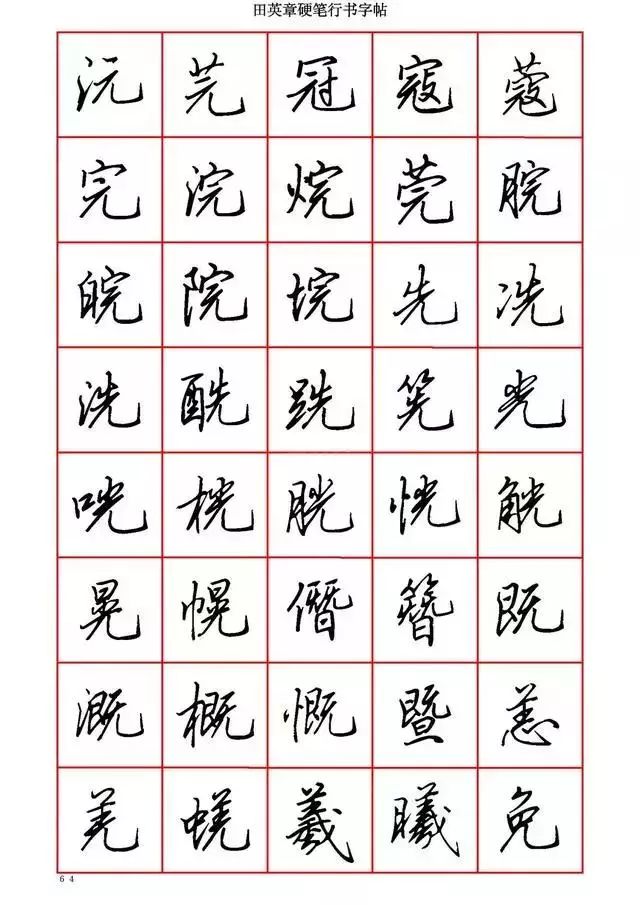 田英章硬笔行书字帖
沅 芫 冠 寇 蔻
完 浣 烷 莞 脘
皖 院 垸 先 冼
洗 酰 跣 筅 光
咣 桄 胱 恍 觥
晃 幌 僭 簪 既
溉 概 慨 暨 恙
羌 蜣 羲 曦 免
64